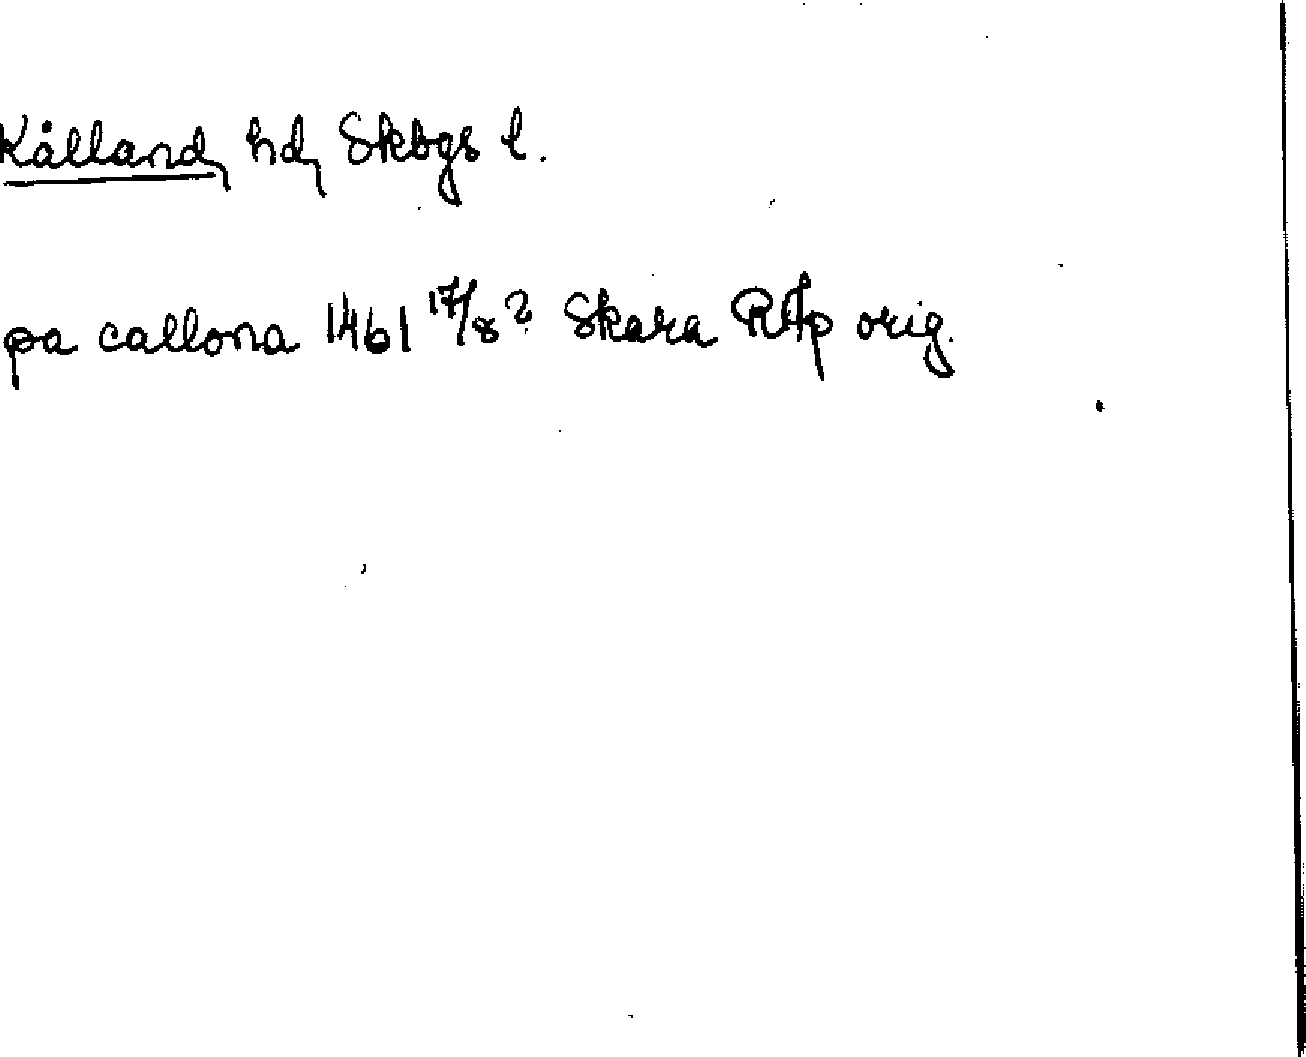 Kålland, hd, Skbgs l.
pa callona 1461 17/8? Skara RAp orig.